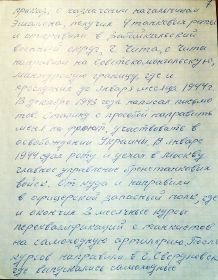 приказ, о назначении начальником
эшелона, получил 4 танковых роты
и отправили в Забайкальский
военный округ, г. Чита, с Читы
направили на советскомонгольскую,
манчжурскую границу, где и
прослужил до января месяца 1944 г.
В декабре 1943 года написал письмо
тов. Сталину с просьбой направить
меня на фронт, участвовать в
освобождении Украины. В январе
1944 сдал роту и уехал в Москву
главное управление бронетанковых
войск. От куда и направили
в офицерский запасный полк, где
и окончил 2 месячные курсы
переквалификации с танкистов
на самоходную артилерию. После
курсов направили в г. Свердловск
где выпускались самоходные